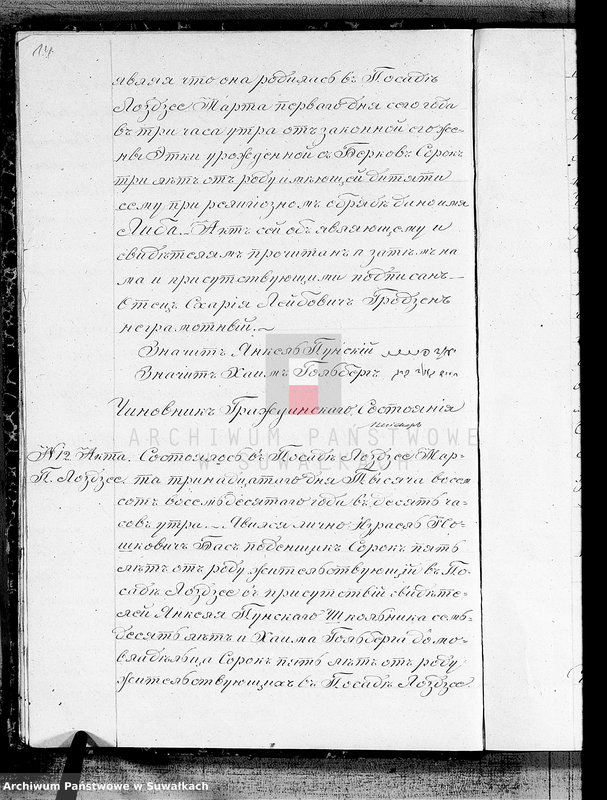 14
являя что она родилась въ Посадѣ
Лоздзее Марта перваго дня сего года
въ три часа утра отъ законной его же-
ны Этки урожденной съ Берковъ Сорокъ
три лѣтъ отъ роду имѣющей дитяти
сему при религіозномъ обрядѣ дано имя
Либа. Актъ сей объявляющему и
свидѣтелямъ прочитанъ а затѣмъ на
ма и присутствующими подписанъ
Отецъ Схарія Лейбовичъ Гродзенъ
неграмотный.
Значитъ Янкель Пунскій
Значитъ Хаимъ Гольбергъ
Чиновникъ Гражданскаго Состоянія
ARCHIWUM PAŃSTWOWE
W SUWAŁKACH
№12 Акта. Состоялось въ Посадѣ Лоздзее Мар-
П. Лоздзее. та тринадцатаго дня Тысяча восем
сотъ восемьдесятаго года въ десять ча-
совъ утра. Явился лично Израель Го-
шковичъ Басъ поденщикъ Сорокъ пять
лѣтъ отъ роду жительствующій въ По-
садѣ Лоздзее въ присутствіи свидѣте-
лей Янкеля Пунскаго Школьника семь-
десять лѣтъ и Хаима Гольберга домо-
владѣльца Сорокъ пять лѣтъ отъ роду
жительствующихъ въ Посадѣ Лоздзее
Archiwum Państwowe w Suwałkach